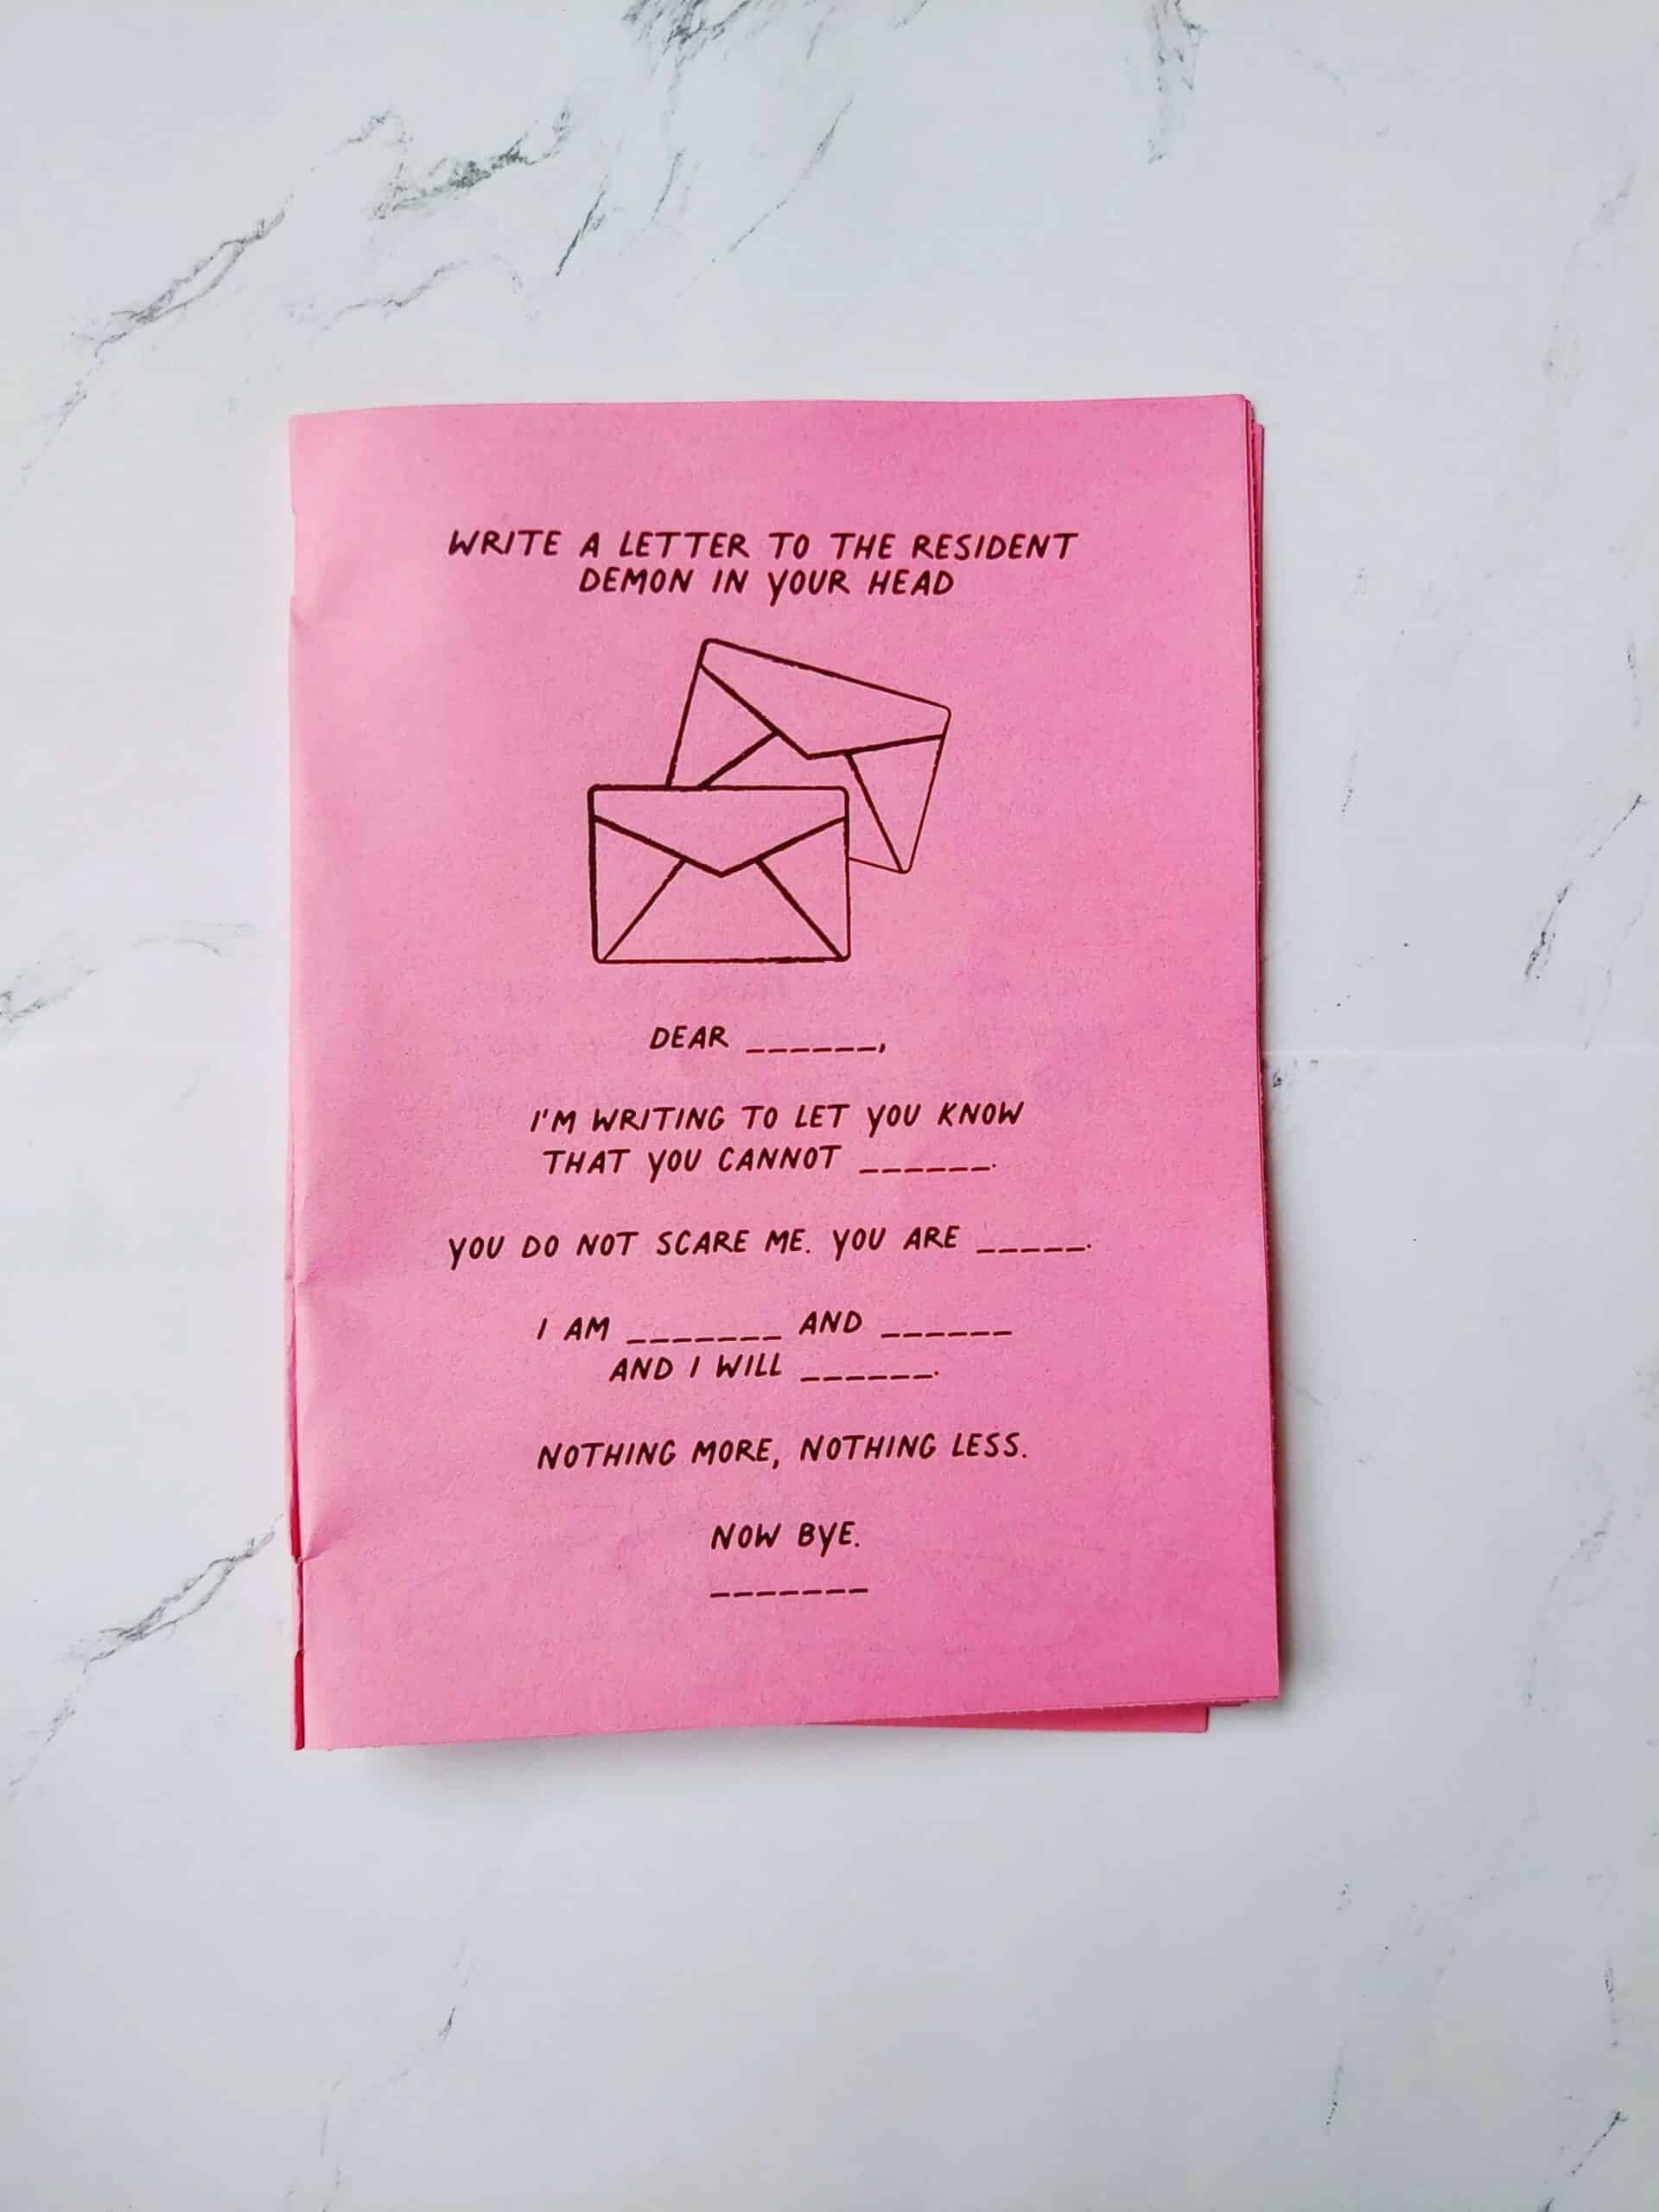 WRITE A LETTER TO THE RESIDENT
DEMON IN YOUR HEAD
DEAR ______,
I'M WRITING TO LET YOU KNOW
THAT YOU CANNOT ______.
YOU DO NOT SCARE ME. YOU ARE _____.
I AM _______ AND ______
AND I WILL ______.
NOTHING MORE, NOTHING LESS.
NOW BYE.
_______